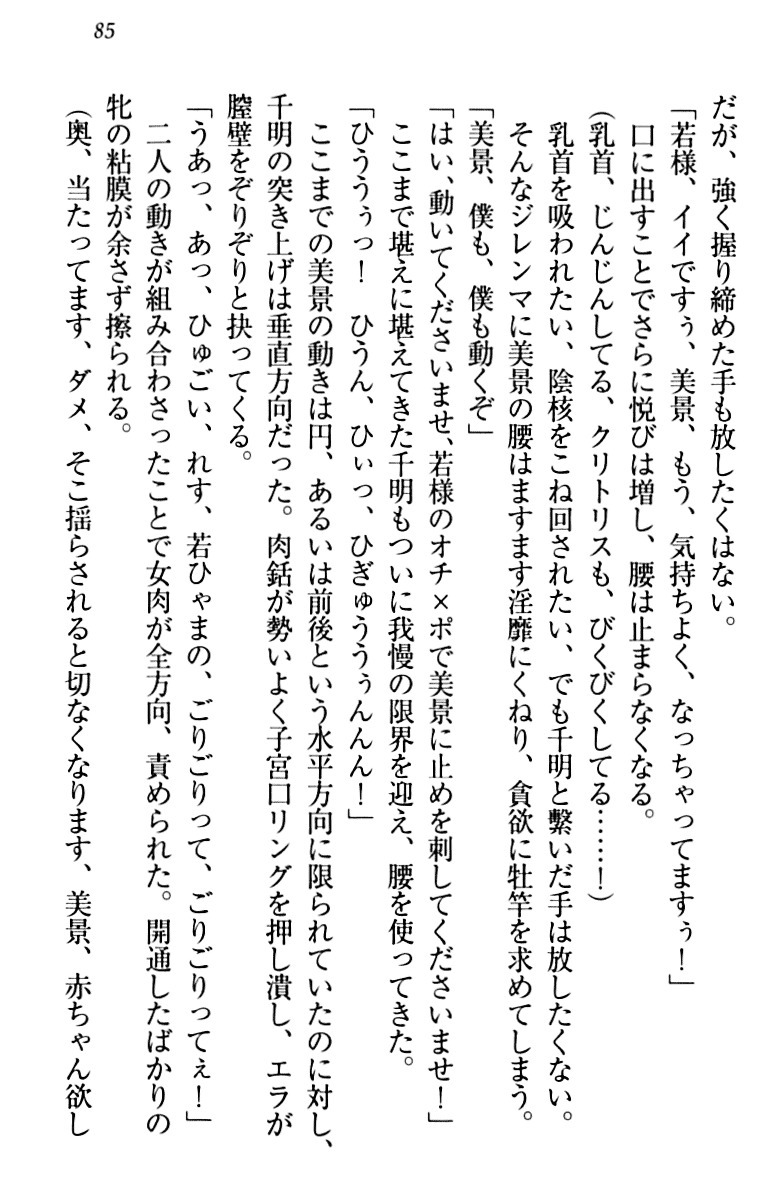 85
だが、強く握り締めた手も放したくはない。
「若様、イイですぅ、美景、もう、気持ちよく、なっちゃってますぅ！」
口に出すことでさらに悦びは増し、腰は止まらなくなる。
（乳首、じんじんしてる、クリトリスも、びくびくしてる……！）
乳首を吸われたい、陰核をこね回されたい、でも千明と繋いだ手は放したくない。
そんなジレンマに美景の腰はますます淫靡にくねり、貪欲に牡竿を求めてしまう。
「美景、僕も、僕も動くぞ」
「はい、動いてくださいませ、若様のオチ×ポで美景に止めを刺してくださいませ！」
ここまで堪えに堪えてきた千明もついに我慢の限界を迎え、腰を使ってきた。
「ひううぅっ！　ひうん、ひぃっ、ひぎゅううぅんんん！」
ここまでの美景の動きは円、あるいは前後という水平方向に限られていたのに対し、
千明の突き上げは垂直方向だった。肉銛が勢いよく子宮口リングを押し潰し、エラが
膣壁をぞりぞりと抉ってくる。
「うあっ、あっ、ひゅごい、れす、若ひゃまの、ごりごりって、ごりごりってぇ！」
二人の動きが組み合わさったことで女肉が全方向、責められた。開通したばかりの
牝の粘膜が余さず擦られる。
（奥、当たってます、ダメ、そこ揺らされると切なくなります、美景、赤ちゃん欲し